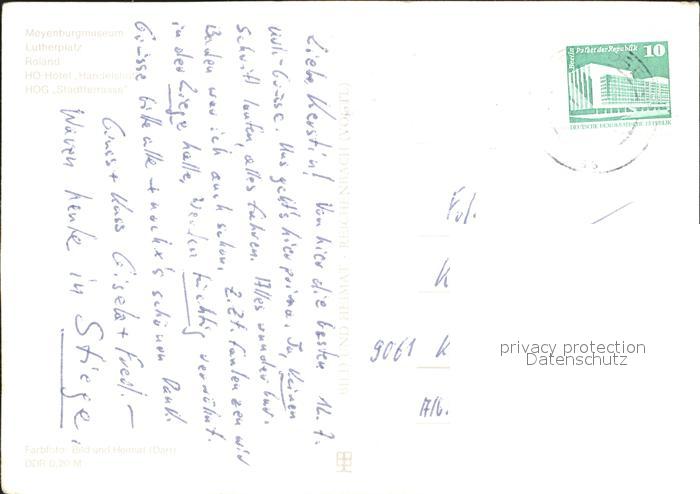 Meyenburgmuseum
Lutherplatz
Roland
HO-Hotel „Handelshof"
HOG „Stadtterrasse"
Liebe Kerstin! Von hier die besten
Grüsse. Uns geht's hier prima. Ja, keinen
Schritt laufen, alles fahren. Alles wunderbar.
Baden war ich auch schon. Z.Zt. faulenzen wir
in der Liege halle, werden tüchtig verwöhnt.
Grüsse bitte alle + nochx's schönen Dank.
Gruss + Kuss Gisela + Fredi.
Waren heute in Stiege.
12.7.
Farbfoto: Bild und Heimat (Darr)
DDR 0,20 M
BILD UND HEIMAT · REICHENBACH (VOGTL)
Berlin Palast der Republik 10
DEUTSCHE DEMOKRATISCHE REPUBLIK
Frl.
K
9061 K
Alb.
privacy protection
Datenschutz